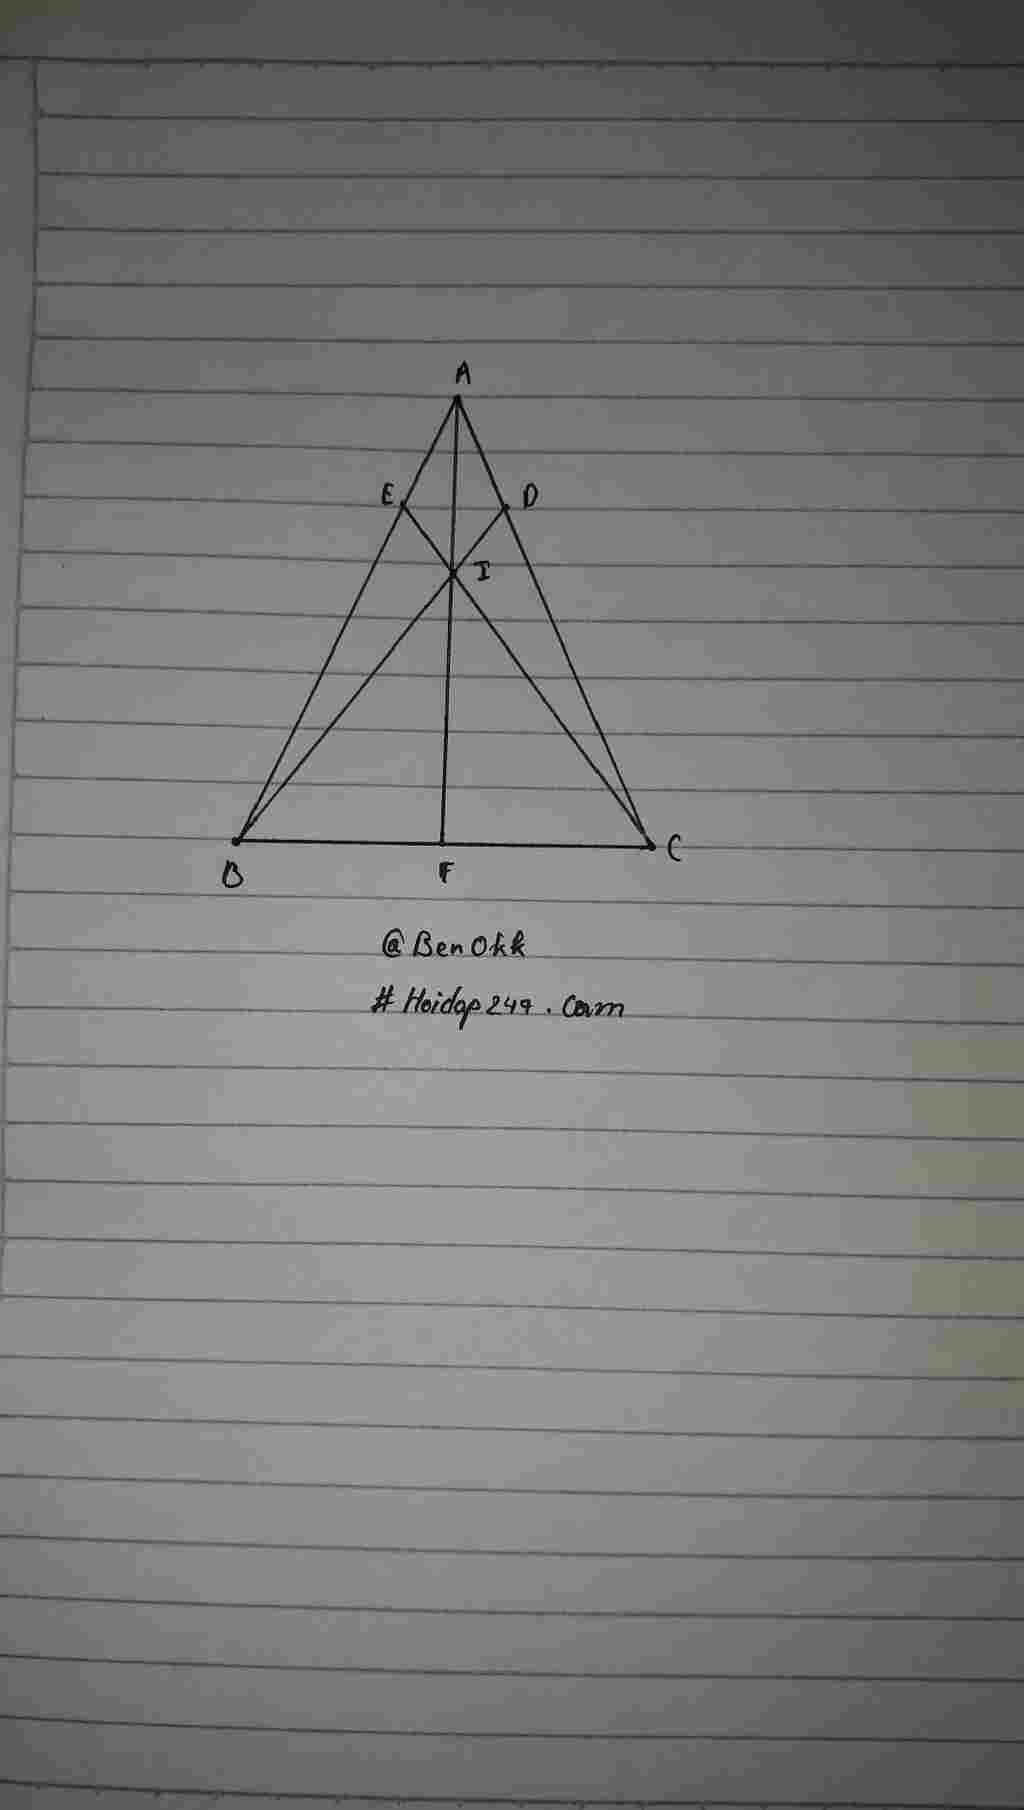 A
E D
I
B F C
@BenOkk
# Hoidap247.Com